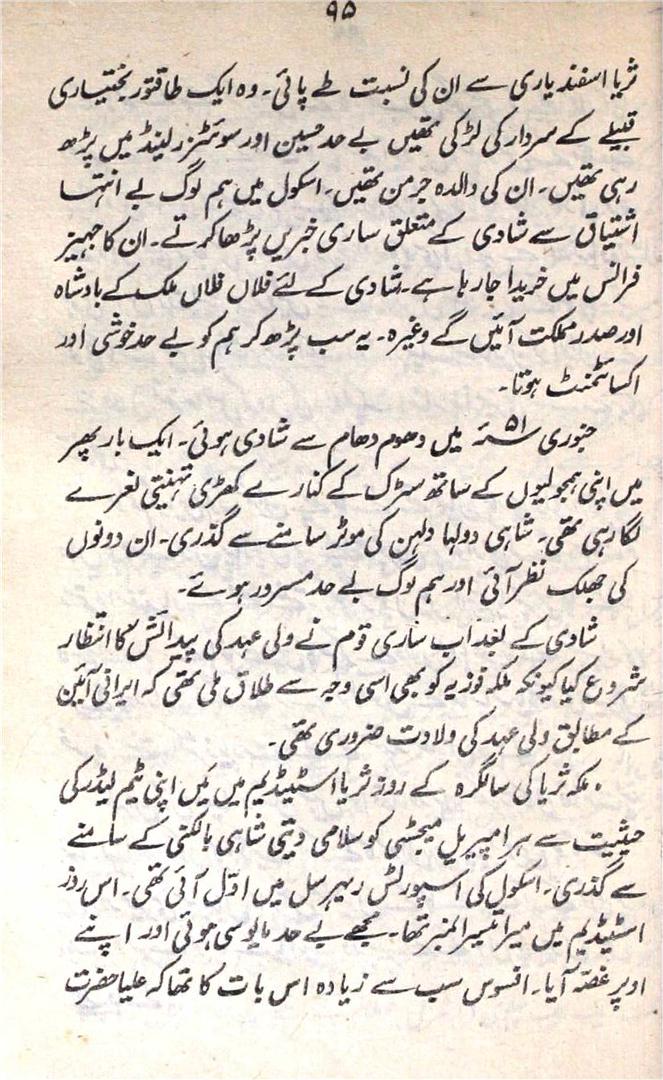 ۹۵
ثریا اسفندیاری سے ان کی نسبت طے پائی۔ وہ ایک طاقتور بختیاری
قبیلے کے سردار کی لڑکی تھیں بے حد حسین اور سوئٹزرلینڈ میں پڑھ
رہی تھیں۔ ان کی والدہ جرمن تھیں۔ اسکول میں ہم لوگ بے انتہا
اشتیاق سے شادی کے متعلق ساری خبریں پڑھا کرتے۔ ان کا جہیز
فرانس میں خریدا جا رہا ہے۔ شادی کے لئے فلاں فلاں ملک کے بادشاہ
اور صدر مملکت آئیں گے وغیرہ۔ یہ سب پڑھ کر ہم کو بے حد خوشی اور
اکسائٹمنٹ ہوتا۔
جنوری ۵۱ء میں دھوم دھام سے شادی ہوئی۔ ایک بار پھر
میں اپنی ہمجولیوں کے ساتھ سڑک کے کنارے کھڑی تہنیتی نعرے
لگا رہی تھی۔ شاہی دولہا دلہن کی موٹر سامنے سے گذری۔ ان دونوں
کی جھلک نظر آئی اور ہم لوگ بے حد مسرور ہوئے۔
شادی کے بعد اب ساری قوم نے ولی عہد کی پیدائش کا انتظار
شروع کیا کیونکہ ملکہ فوزیہ کو بھی اسی وجہ سے طلاق ملی تھی کہ ایرانی آئین
کے مطابق ولی عہد کی ولادت ضروری تھی۔
ملکہ ثریا کی سالگرہ کے روز ثریا اسٹیڈیم میں میں اپنی ٹیم لیڈر کی
حیثیت سے ہر امپیریل میجسٹی کو سلامی دیتی شاہی بالکنی کے سامنے
سے گذری۔ اسکول کی اسپورٹس ریہرسل میں اوّل آئی تھی۔ اس روز
اسٹیڈیم میں میرا تیسرا نمبر تھا۔ مجھے بے حد مایوسی ہوئی اور اپنے
اوپر غصّہ آیا۔ افسوس سب سے زیادہ اس بات کا تھا کہ علیا حضرت